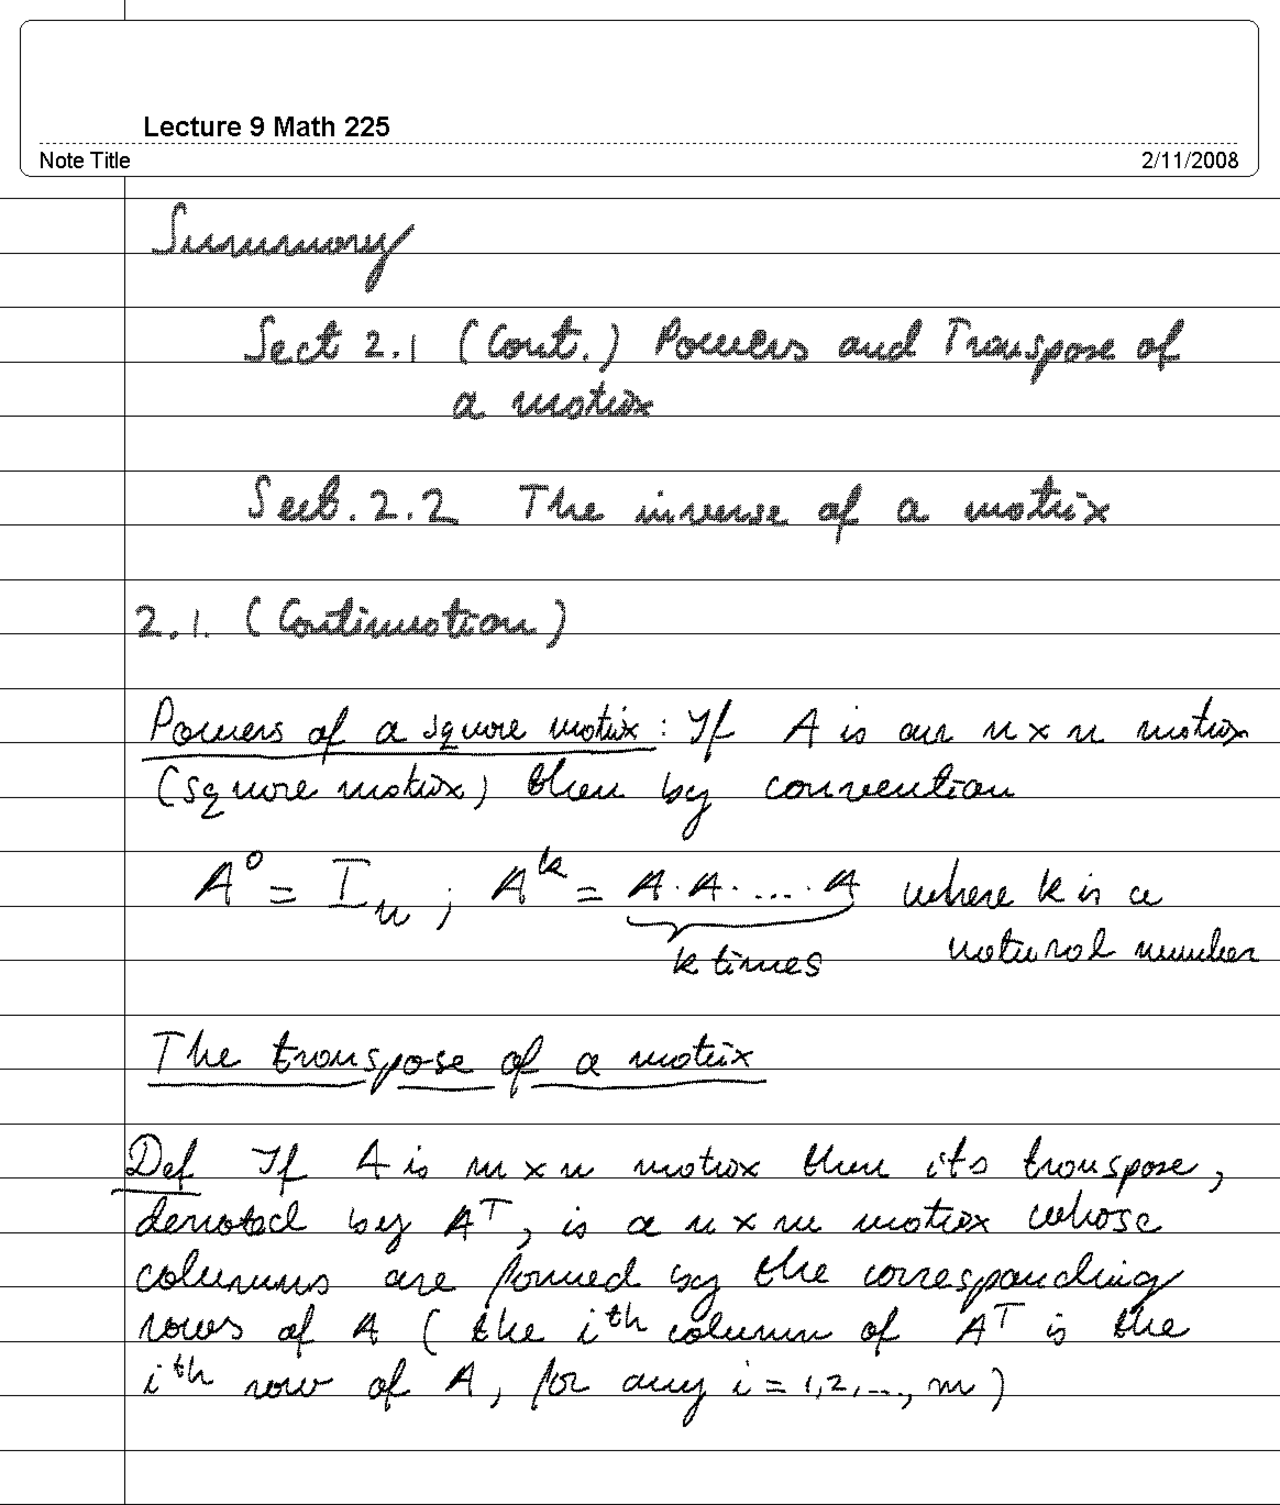 Lecture 9 Math 225
Note Title 2/11/2008
Summary
Sect 2.1 (Cont.) Powers and Transpose of
a matrix
Sect. 2.2 The inverse of a matrix
2.1. (Continuation)
Powers of a square matrix: If A is an n x n matrix
(square matrix) then by convention
A⁰ = Iₙ ; Aᵏ = A · A · .... · A where k is a
k times natural number
The transpose of a matrix
Def If A is m x n matrix then its transpose,
denoted by Aᵀ, is a n x m matrix whose
columns are formed by the corresponding
rows of A ( the iᵗʰ column of Aᵀ is the
iᵗʰ row of A, for any i = 1,2,..., m)